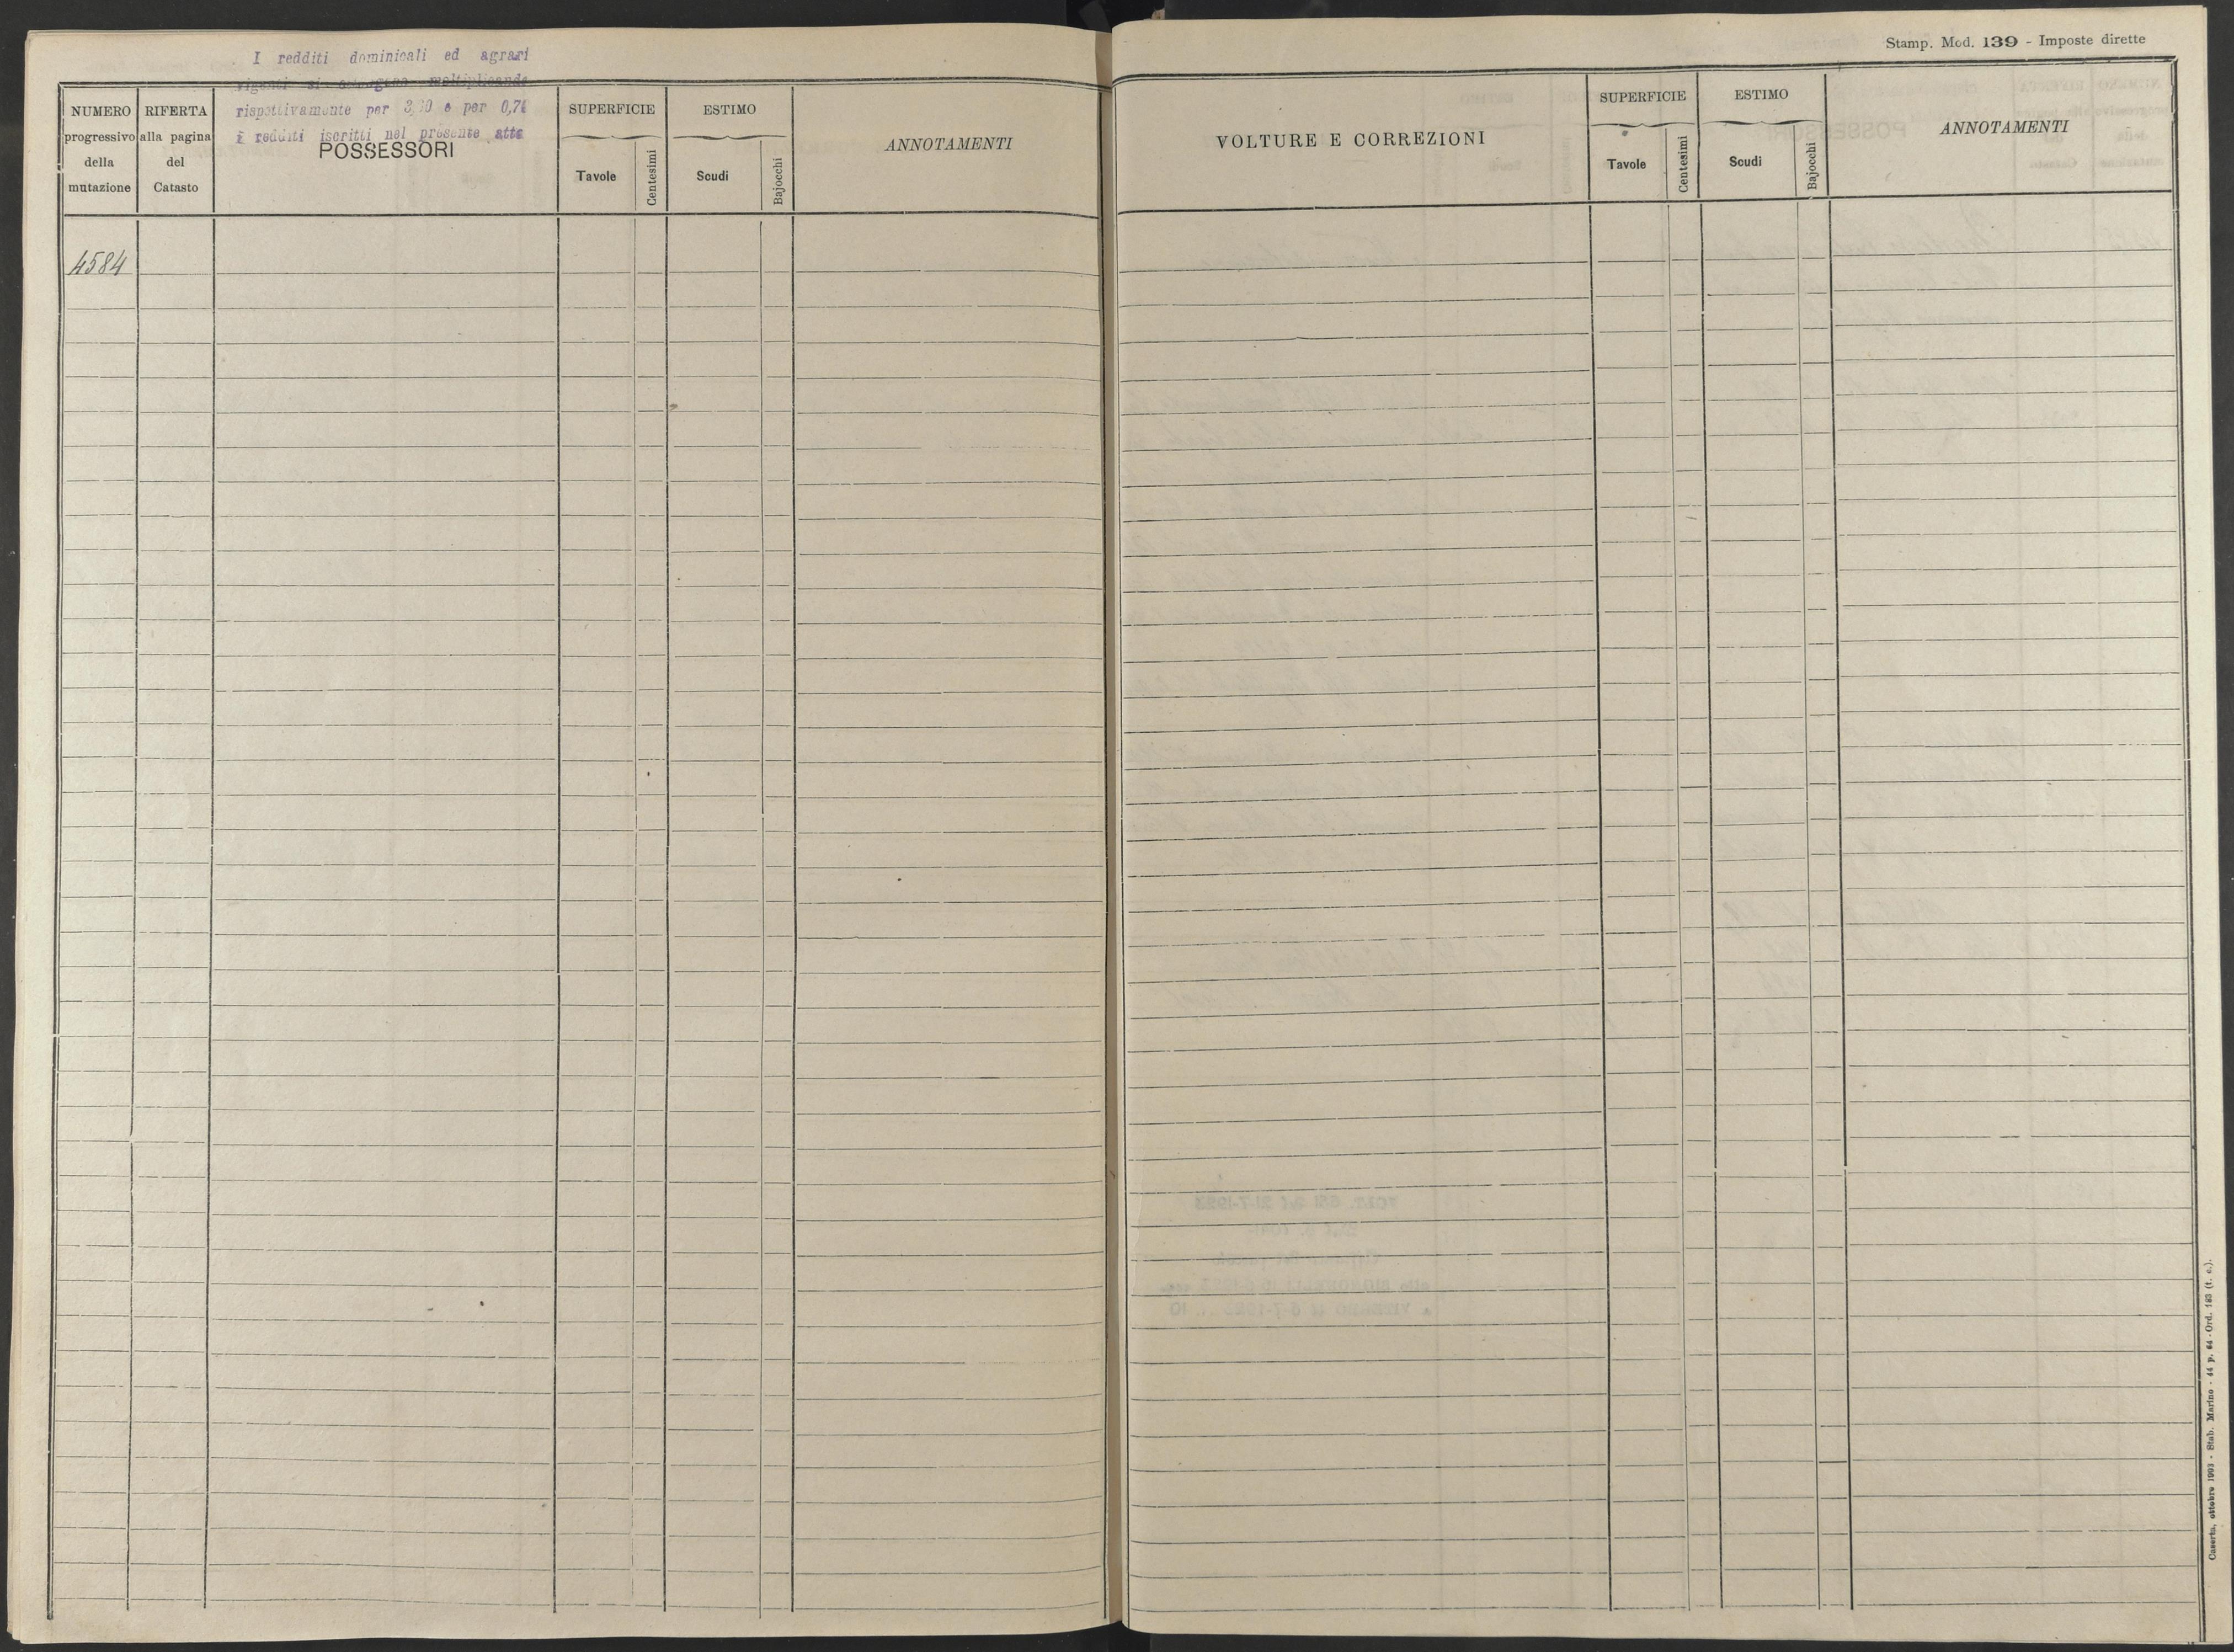 I redditi dominicali ed agrari
vigenti si ottengono moltiplicando
rispettivamente per 3,20 e per 0,74
i redditi iscritti nel presente atto
NUMERO
progressivo
della
mutazione
RIFERTA
alla pagina
del
Catasto
POSSESSORI
SUPERFICIE
Tavole
Centesimi
ESTIMO
Scudi
Bajocchi
ANNOTAMENTI
4584
Stamp. Mod. 139 - Imposte dirette
VOLTURE E CORREZIONI
SUPERFICIE
Tavole
Centesimi
ESTIMO
Scudi
Bajocchi
ANNOTAMENTI
Caserta, ottobre 1993 - Stab. Marino - 44 p. 64 - Ord. 183 (t. c.).